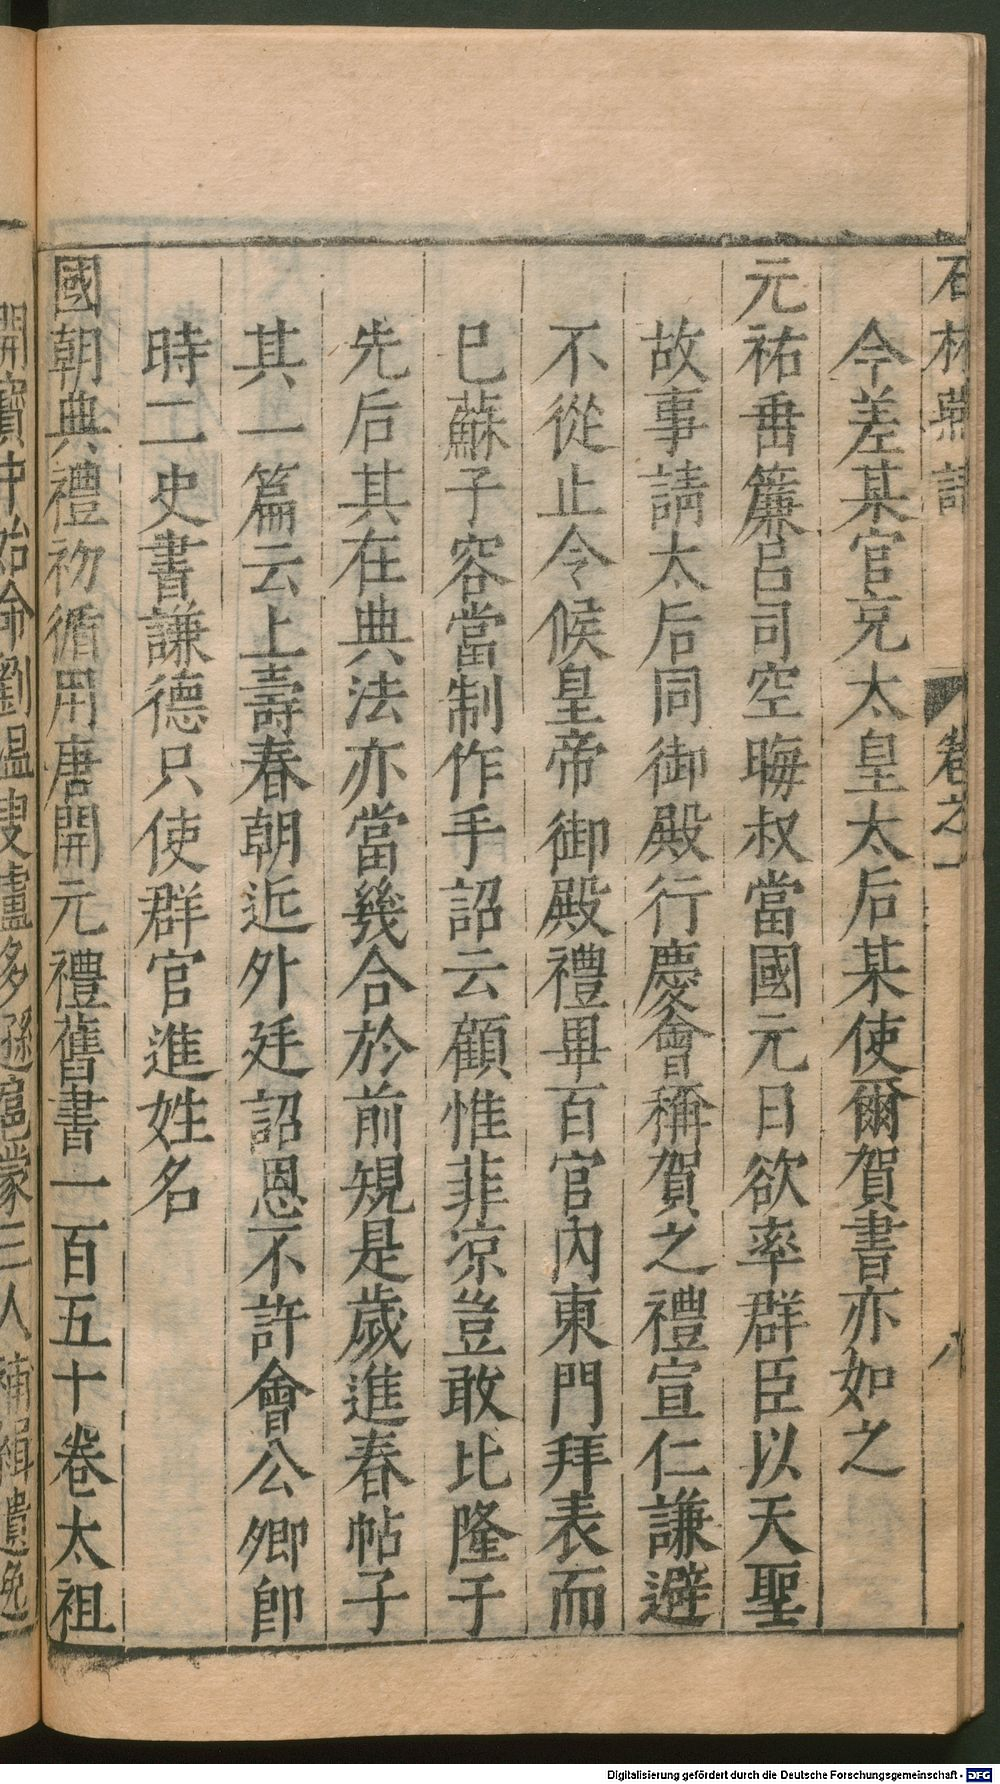 石林燕語
卷之一
八
今差某官充太皇太后某使爾賀書亦如之
元祐垂簾呂司空晦叔當國元日欲率群臣以天聖
故事請太后同御殿行慶會稱賀之禮宣仁謙避
不從止令候皇帝御殿禮畢百官內東門拜表而
巳蘇子容當制作手詔云顧惟菲凉豈敢比隆于
先后其在典法亦當幾合於前規是歲進春帖子
其一篇云上壽春朝近外廷詔恩不許會公卿卽
時二史書謙德只使群官進姓名
國朝典禮初循用唐開元禮舊書一百五十卷太祖
開寶中始命劉温叟盧多遜扈蒙三人補緝遺逸
Digitalisierung gefördert durch die Deutsche Forschungsgemeinschaft - DFG